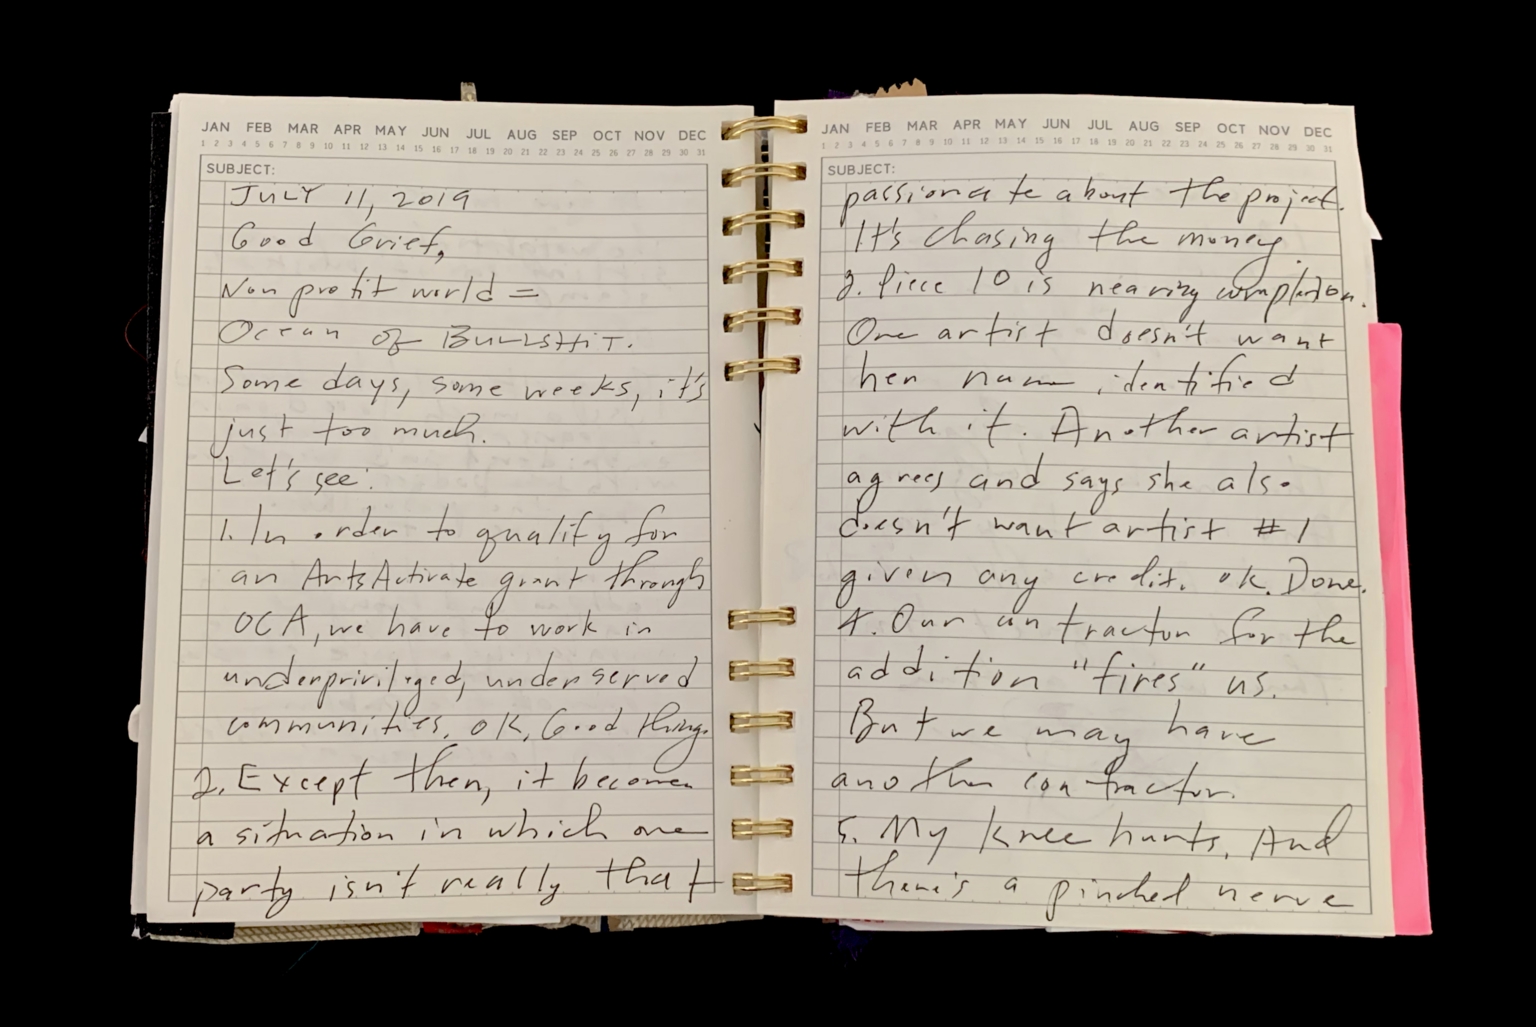 JAN FEB MAR APR MAY JUN JUL AUG SEP OCT NOV DEC
1 2 3 4 5 6 7 8 9 10 11 12 13 14 15 16 17 18 19 20 21 22 23 24 25 26 27 28 29 30 31
SUBJECT:
JULY 11, 2019
Good Grief,
Non profit world =
Ocean of BULLSHIT.
Some days, some weeks, it's
just too much.
Let's see:
1. In order to qualify for
an ArtsActivate grant through
OCA, we have to work in
underprivileged, underserved
communities. OK, Good thing.
2. Except then, it becomes
a situation in which one
party isn't really that
JAN FEB MAR APR MAY JUN JUL AUG SEP OCT NOV DEC
1 2 3 4 5 6 7 8 9 10 11 12 13 14 15 16 17 18 19 20 21 22 23 24 25 26 27 28 29 30 31
SUBJECT:
passionate about the project.
It's chasing the money.
3. Piece 10 is nearing completion.
One artist doesn't want
her name identified
with it. Another artist
agrees and says she also
doesn't want artist #1
given any credit. OK. Done.
4. Our contractor for the
addition "fires" us.
But we may have
another contractor.
5. My knee hurts. And
there's a pinched nerve